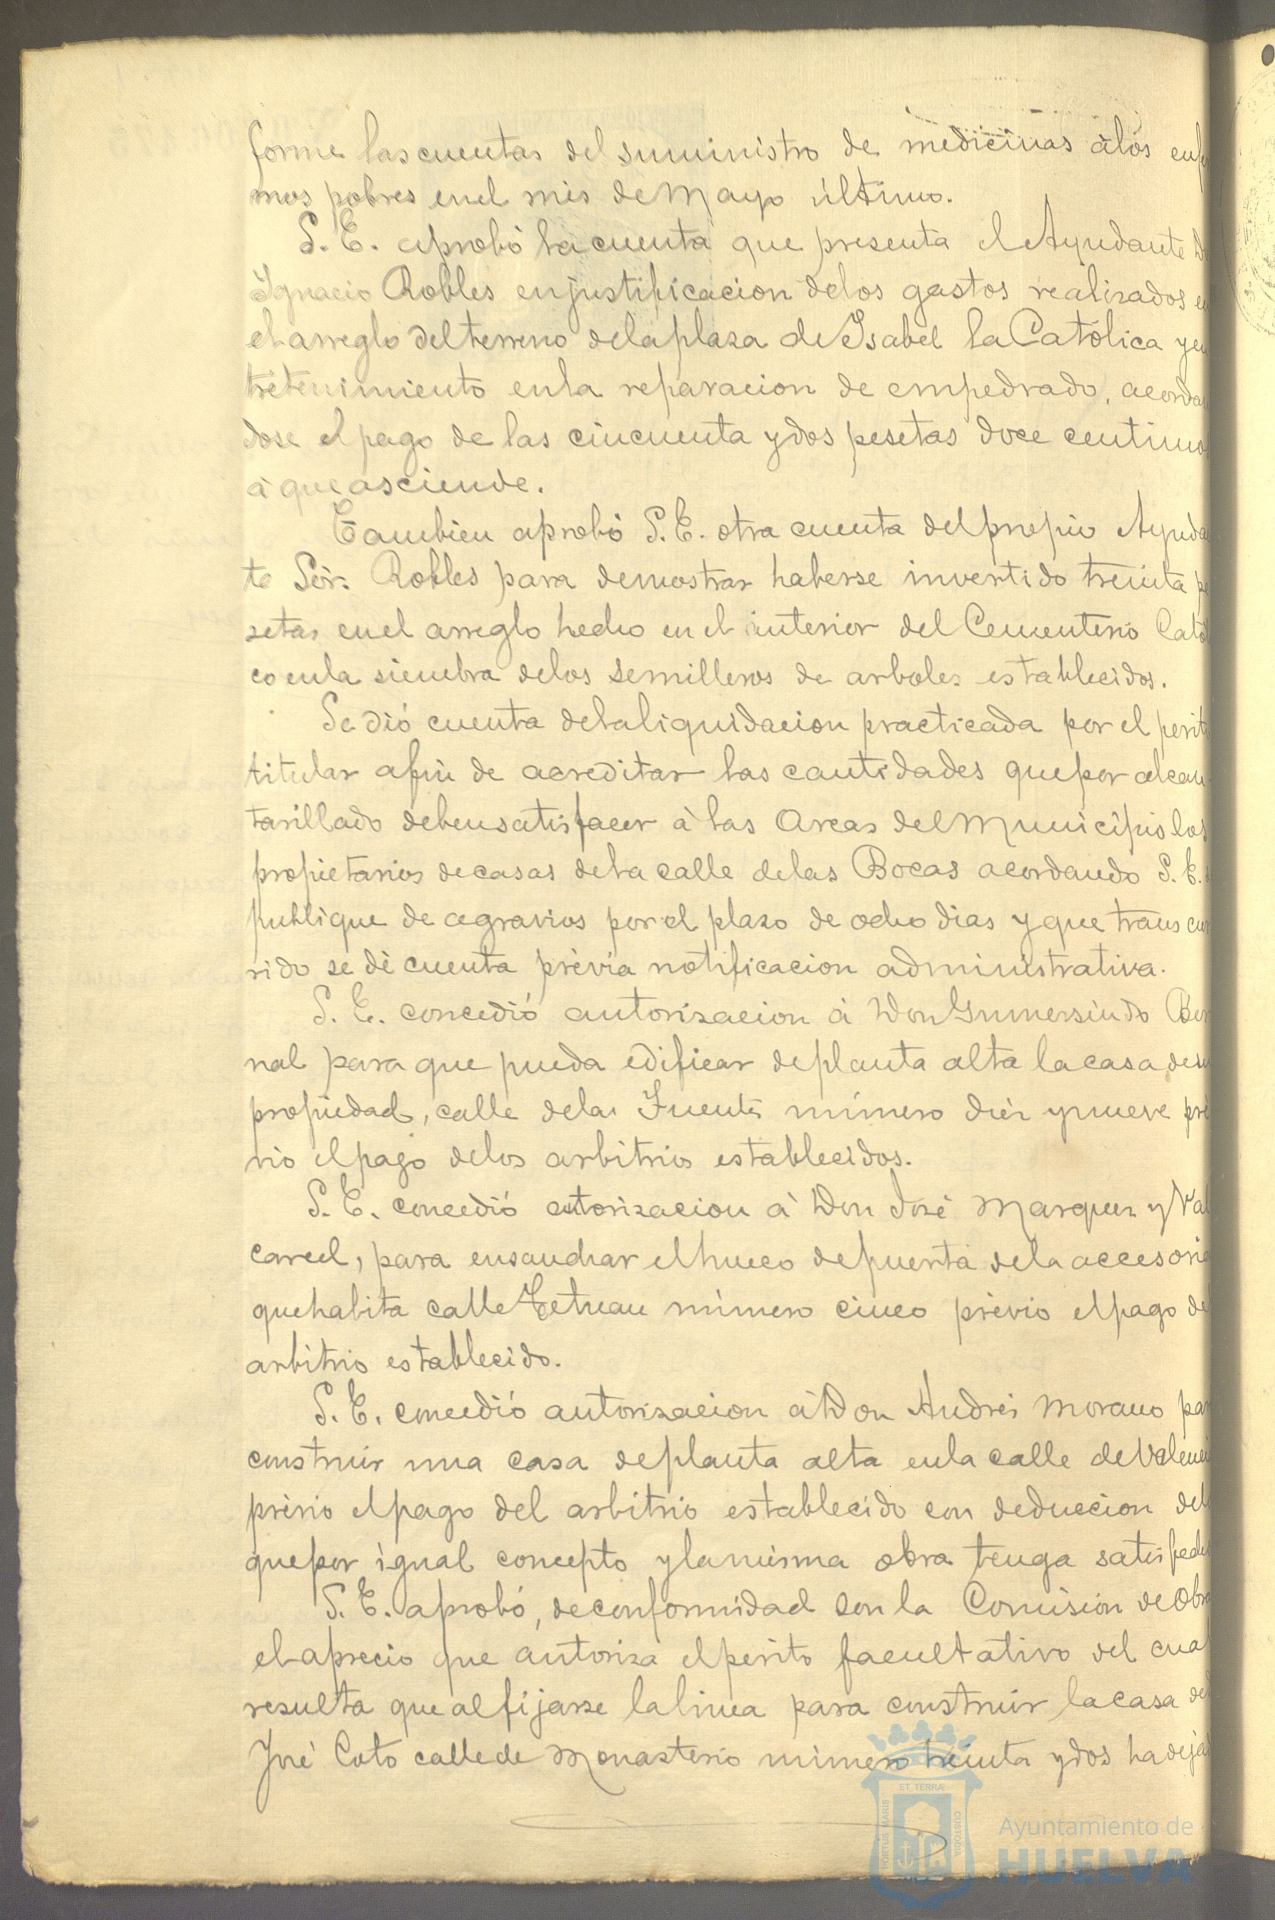 forme las cuentas del suministro de medicinas à los enfer
mos pobres en el mes de Mayo último.
S. E. aprobó la cuenta que presenta el Ayudante Dn
Ignacio Robles en justificacion de los gastos realizados en
el arreglo del terreno de la plaza de Ysabel la Católica y en
tretenimiento en la reparacion de empedrado, acordan
dose el pago de las cincuenta y dos pesetas doce centimos
à que asciende.
Tambien aprobó S. E. otra cuenta del propio Ayudan
te Sor. Robles para demostrar haberse invertido treinta pe
setas en el arreglo hecho en el interior del Cementerio Catoli
co en la siembra de los semilleros de arboles establecidos.
Se dió cuenta de la liquidacion practicada por el perito
titular afin de acreditar las cantidades que por alcan-
tarillado deben satisfacer à las Arcas del Municipio los
propietarios de casas de la calle de las Bocas acordando S. E. se
publique de agravios por el plazo de ocho dias y que transcur
rido se dè cuenta prèvia notificacion administrativa.
S. E. concedió autorizacion à Don Gumersindo Ber
nal para que pueda edificar de planta alta la casa de su
propiedad, calle de la Fuente número diez y nueve pre
vio el pago de los arbitrios establecidos.
S. E. concedió autorizacion à Don José Marquez y Val
carcel, para ensanchar el hueco de puerta de la accesoria
que habita calle Tetuan número cinco prèvio el pago del
arbitrio establecido.
S. E. concedió autorizacion à Don Andrés Morano para
construir una casa de planta alta en la calle de Valencia
prèvio el pago del arbitrio establecido con deduccion del
que por igual concepto y la misma obra tenga satisfecho
S. E. aprobó, de conformidad con la Comision de Obras
el aprecio que autoriza el perito facultativo del cual
resulta que al fijarse la linea para construir la casa de
José Coto calle de Monasterio número treinta y dos ha dejado
PORTUS MARIS
ET TERRÆ
CUSTODIA
Ayuntamiento de
HUELVA